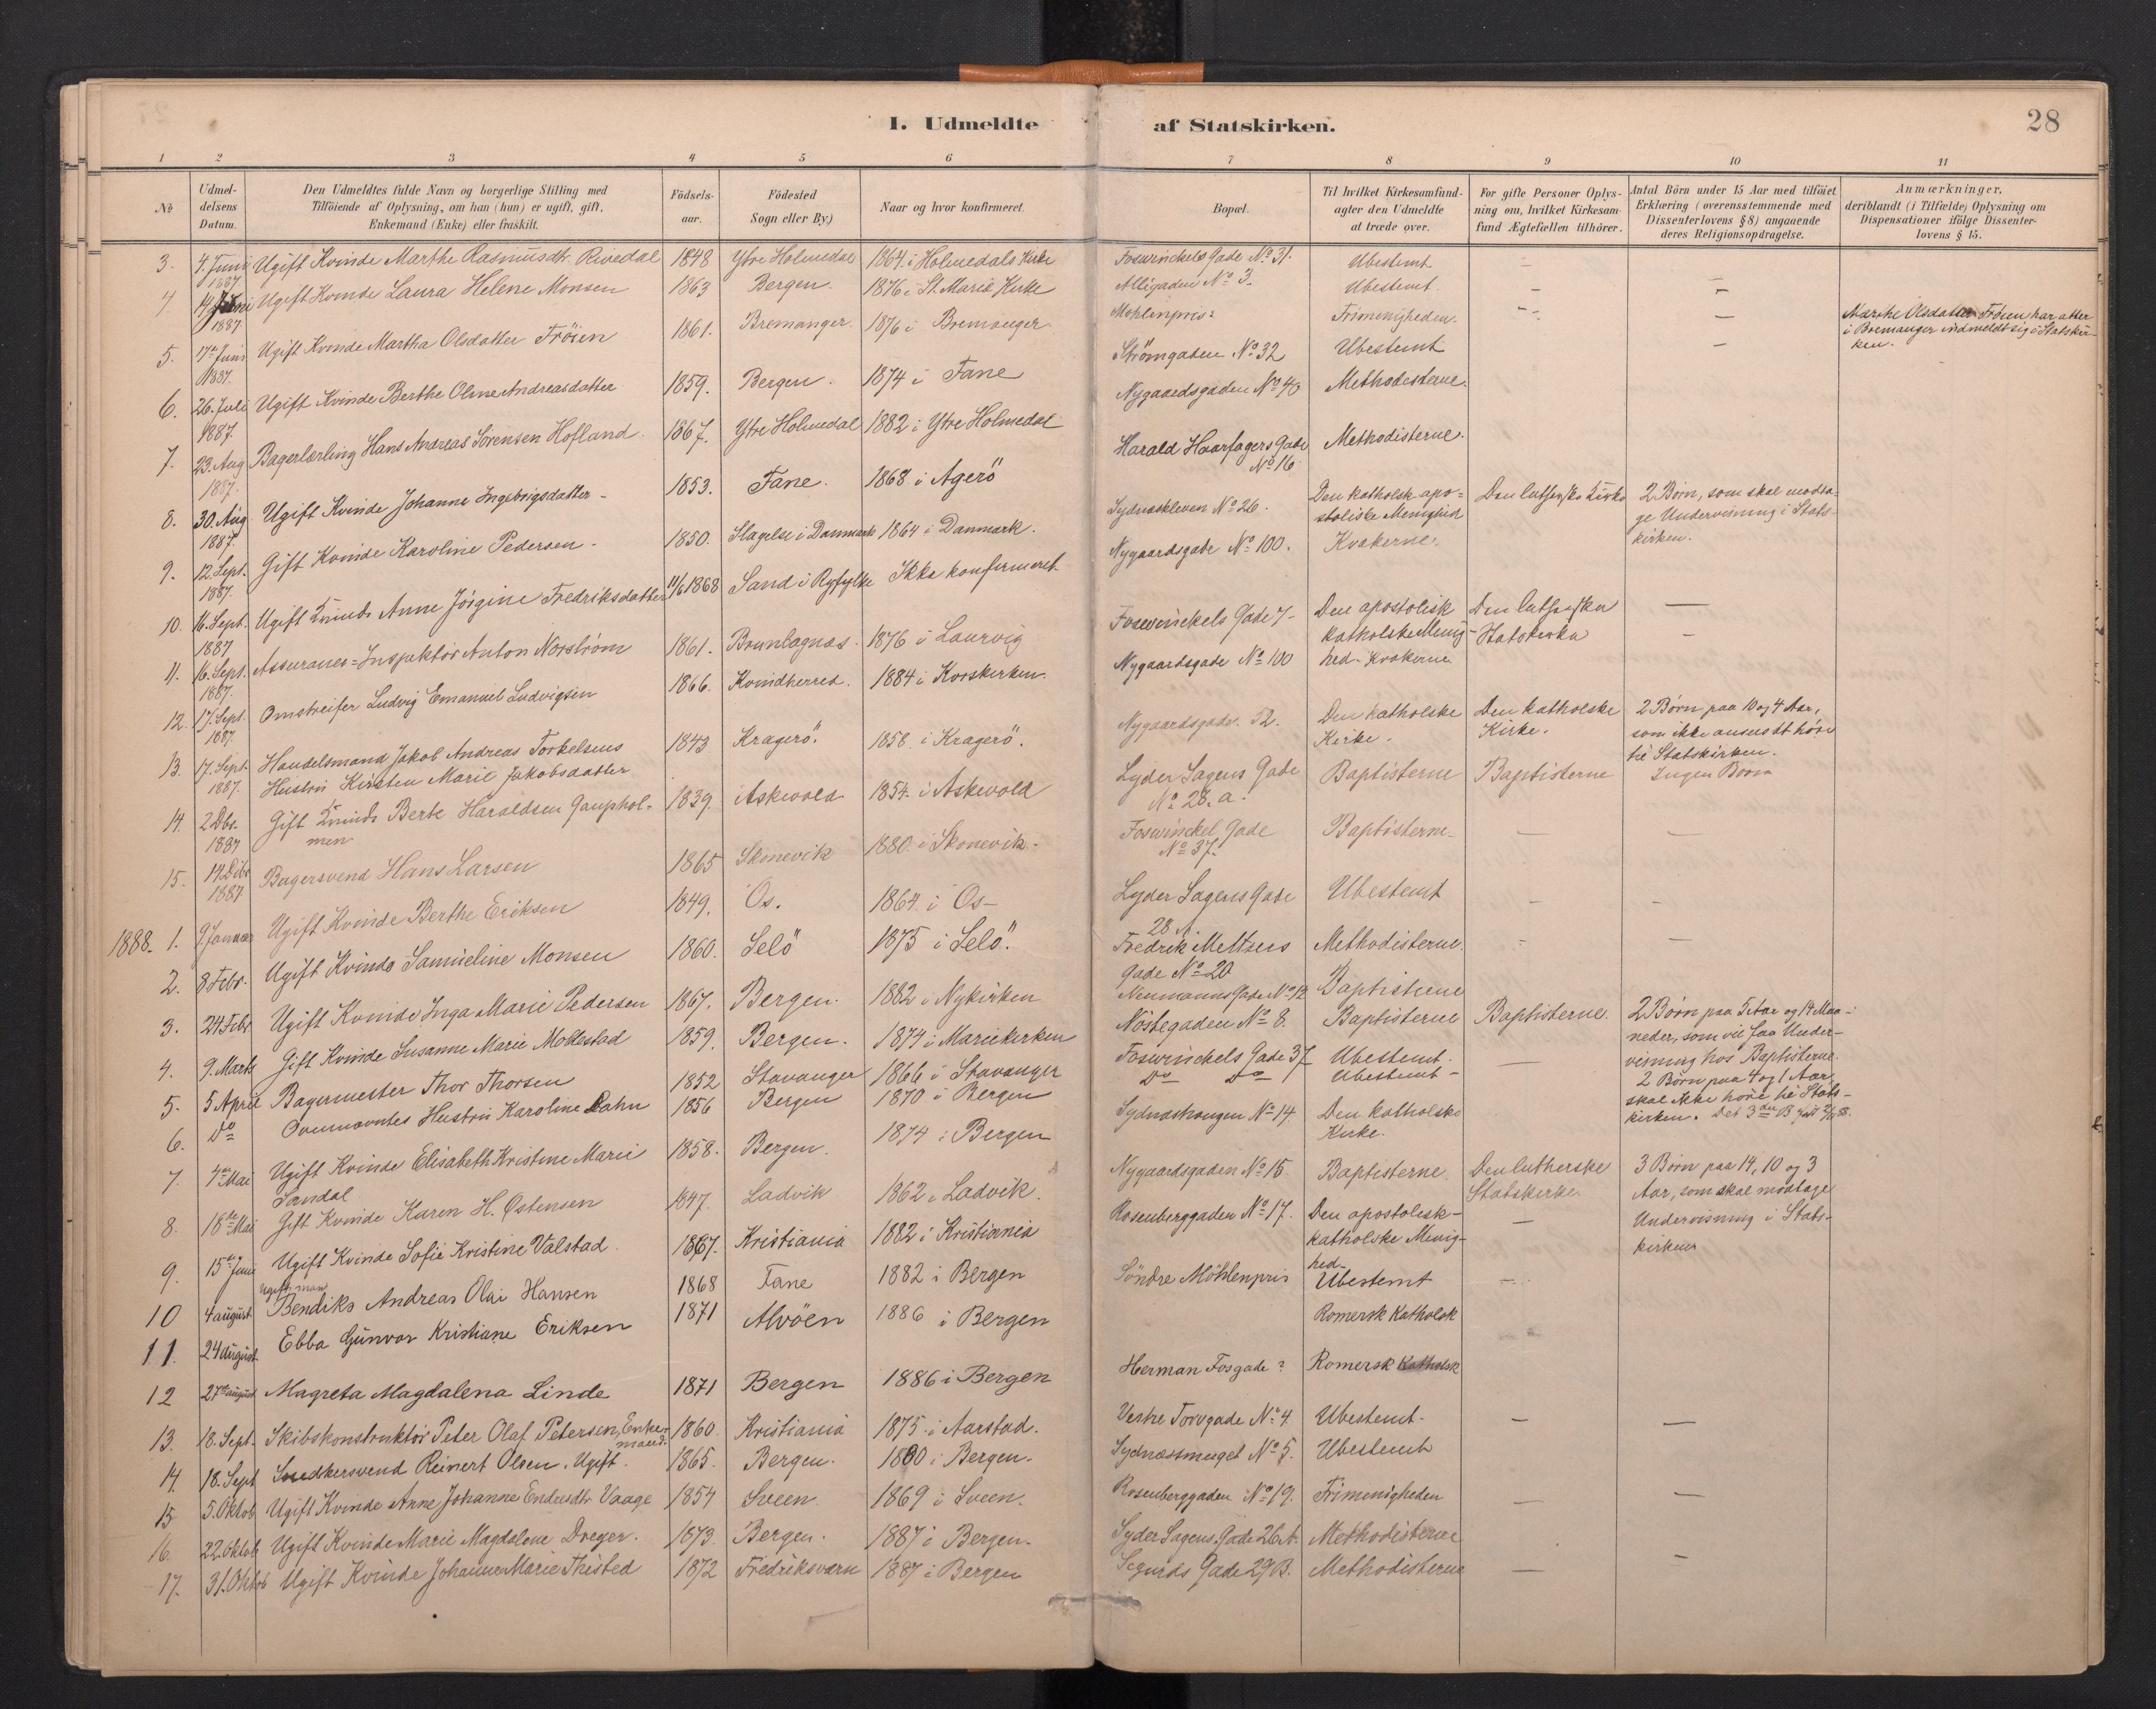 I. Udmeldte af Statskirken.
28
1 2 3 4 5 6 7 8 9 10 11
No
Udmel-
delsens
Datum.
Den Udmeldtes fulde Navn og borgerlige Stilling med
Tilföiende af Oplysning, om han (hun) er ugift, gift,
Enkemand (Enke) eller fraskilt.
Födsels-
aar.
Födested
Sogn eller By)
Naar og hvor konfirmeret.
Bopæl.
Til hvilket Kirkesamfund-
agter den Udmeldte
at træde over.
For gifte Personer Oplys-
ning om, hvilket Kirkesam-
fund Ægtefællen tilhörer.
Antal Börn under 15 Aar med tilföiet
Erklæring (overensstemmende med
Dissenterlovens § 8) angaaende
deres Religionsopdragelse.
Anmærkninger,
deriblandt (i Tilfælde) Oplysning om
Dispensationer ifölge Dissenter-
lovens § 15.
3. 4. Juni 1887 Ugift Kvinde Marthe Rasmusdtr. Rivedal 1848 Ytre Holmedal 1864 i Holmedals Kirke Foswinckels Gade No 31. Ubestemt
4 14 Juni 1887 Ugift Kvinde Laura Helene Monsen 1863 Bergen. 1876 i St. Mariæ Kirke Alligaden No 3. Ubestemt
5. 17de Juni 1887. Ugift Kvinde Martha Olsdatter Fröien 1861. Bremanger. 1876 i Bremanger Möhlenpris Frimenigheden. — Marthe Olsdatter Fröien har atter
i Bremanger indmeldt sig i Statskir-
ken.
6. 26. Juli 1887. Ugift Kvinde Berthe Oline Andreasdatter 1859. Bergen. 1874 i Fane Strömgaden No 32 Ubestemt
7. 23. Aug 1887. Bagerlærling Hans Andreas Sörensen Hofland 1867. Ytre Holmedal 1882 i Ytre Holmedal Nygaardsgaden No 40 Methodisterne.
8. 30. Aug 1887. Ugift Kvinde Johanne Ingebrigsdatter 1853. Fane. 1868 i Agerö Harald Haarfagers Gade
No 16 Methodisterne.
9. 12. Sept. 1887. Gift Kvinde Karoline Pedersen 1850. Slagelse i Danmark 1864 i Danmark. Sydneskleven No 26. Den katholsk apo-
stoliske Menighed Den lutherske Kirke 2 Börn, som skal modta-
ge Undervisning i Stats-
kirken.
10. 16. Sept. 1887 Ugift Kvinde Anne Jörgine Fredriksdatter 11/6 1868 Sand i Ryfylke Ikke konfirmeret Nygaardsgade No 100. Kvækerne.
11. 16. Sept. 1887. Assurance-Inspektör Anton Norström 1861. Brunlagnæs. 1876 i Laurvig Foswinckels Gade 7 Den apostolisk
katholske Menig-
hed Den lutherske
Statskirke —
12. 17. Sept. 1887. Omstreifer Ludvig Emanuel Ludvigsen 1866. Kvindherred. 1884 i Korskirken. Nygaardsgade No 100 Kvækerne —
13. 17. Sept 1887. Handelsmand Jakob Andreas Torkelsens
Hustru Kirsten Marie Jakobsdatter 1843 Kragerö. 1858. i Kragerö. Nygaardsgade. 52. Den katholske
Kirke. Den katholske
Kirke. 2 Börn paa 10 og 4 Aar,
som ikke ansees at höre
til Statskirken.
14. 2 Dbr. 1887 Gift Kvinde Berte Haraldsen Gauphol-
men 1839. Askevold 1854. i Askevold Lyder Sagens Gade
No 28. a. Baptisterne Baptisterne Ingen Börn
15. 14 Debr 1887 Bagersvend Hans Larsen 1865 Skonevik 1880. i Skonevik. Foswinckel Gade
No 37. Baptisterne — —
1888. 1. 9 Januar Ugift Kvinde Berthe Eriksen 1849. Os. 1864 i Os Lyder Sagens Gade
28 A. Ubestemt — —
2. 8 Febr. Ugift Kvinde Samueline Monsen 1860. Selö 1875 i Selö. Fredrik Meltzers
Gade No 20 Methodisterne. —
3. 24 Febr Ugift Kvinde Inga Marie Pedersen 1867. Bergen. 1882 i Nykirken Neumanns Gade No 12 Baptisterne
4. 9. Marts Gift Kvinde Susanne Marie Mollestad 1859. Bergen. 1874 i Mariekirken Nöstegaden No 8. Baptisterne Baptisterne. 2 Börn paa 5 Aar og 14 Maa-
neder, som vil faa Under-
visning hos Baptisterne.
5. 5 April Bagermester Thor Thorsen 1852 Stavanger 1866 i Stavanger Foswinckels Gade 37 Ubestemt. — 2 Börn paa 4 og 1 Aar
skal ikke höre til Stats-
kirken. Det 3die B.
6. Do Ovennævntes Hustru Karoline Rahn 1856 Bergen 1870 i Bergen Do Do Ubestemt
7. 4de Mai Ugift Kvinde Elisabeth Kristine Marie
Sandal 1858. Bergen. 1874 i Bergen Sydneshaugen No 14 Den katholske
Kirke.
8. 18de Mai Gift Kvinde Karen H. Østensen 1847. Ladvik 1862 i Ladvik. Nygaardsgaden No 15. Baptisterne. Den lutherske
Statskirke 3 Börn paa 14, 10 og 3
Aar, som skal modtage
Undervisning i Stats-
kirken
9. 15de Juni Ugift Kvinde Sofie Kristine Valstad. 1867. Kristiania 1882 i Kristiania Rosenberggaden No 17. Den apostolisk-
katholske Menig-
hed. —
10 4 august Ugift man
Bendiks Andreas Olai Hansen 1868 Fane 1882 i Bergen Söndre Möhlenpris Ubestemt
11. 24 august Ebba Gunvor Kristiane Eriksen 1871 Alvöen 1886 i Bergen Romersk Katholsk
12 27de august Magreta Magdalena Linde 1871 Bergen 1886 i Bergen Herman Fosgade ? Romersk Katholsk
13. 18. Sept. Skibskonstruktör Peter Olaf Petersen, Enke-
mand. 1860. Kristiania 1875 i Aarstad. Vestre Torvgade No 4. Ubestemt. — —
14. 18. Sept Snedkersvend Reinert Olsen. Ugift. 1865. Bergen. 1880 i Bergen. Sydnessmuget No 5. Ubestemt
15 5. Oktob Ugift Kvinde Anne Johanne Endresdtr Vaage 1854 Sveen. 1869 i Sveen. Rosenberggaden No 19. Frimenigheden — —
16. 22. Oktob Ugift Kvinde Marie Magdalene Dreyer. 1873. Bergen. 1887 i Bergen. Lyder Sagens Gade 26 A. Methodisterne
17. 31. Oktob Ugift Kvinde Johanne Marie Thisted 1872 Fredriksværn 1887 i Bergen Sigurds Gade 29 B. Methodisterne —